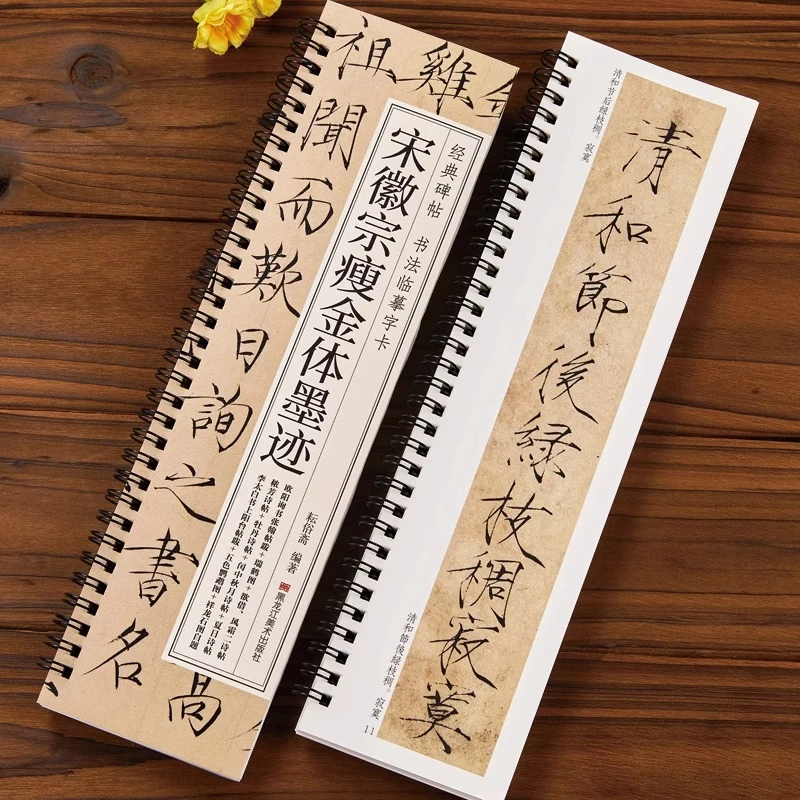 雞
高
祖聞而歎曰詢之書名
经典碑帖 书法临摹字卡
宋徽宗瘦金体墨迹
欧阳询书张翰帖跋+瑞鹤图+欲借、风霜二诗帖
秾芳诗帖+牡丹诗帖+闰中秋月诗帖+夏日诗帖
李太白书上阳台帖跋+五色鹦鹉图+祥龙石图自题
耘俗斋 编著
黑龙江美术出版社
清和节后绿枝稠。寂寞
清和節後緑枝稠寂寞
清和節後緑枝稠。寂寞
11